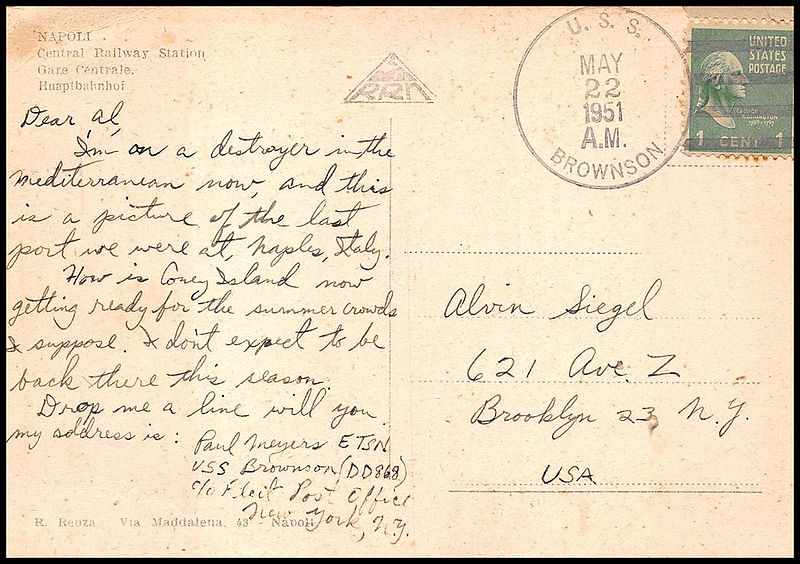 NAPOLI
Central Railway Station
Gare Centrale.
Huaptbahnhof
RRN
U. S. S.
MAY
22
1951
A.M.
BROWNSON
UNITED
STATES
POSTAGE
GEORGE
WASHINGTON
1789-1797
1 CENT 1
Dear Al,
I'm on a destroyer in the
Mediterranean now, and this
is a picture of the last
port we were at, Naples, Italy.
How is Coney Island now
getting ready for the summer crowds
I suppose. I don't expect to be
back there this season.
Drop me a line will you
my address is:
Paul Meyers ETSN
USS Brownson (DD868)
c/o Fleit Post Office
New York, N.Y.
Alvin Siegel
621 Ave. Z
Brooklyn 23, N.Y.
USA
R. Reoza Via Maddalena, 43 - Napoli